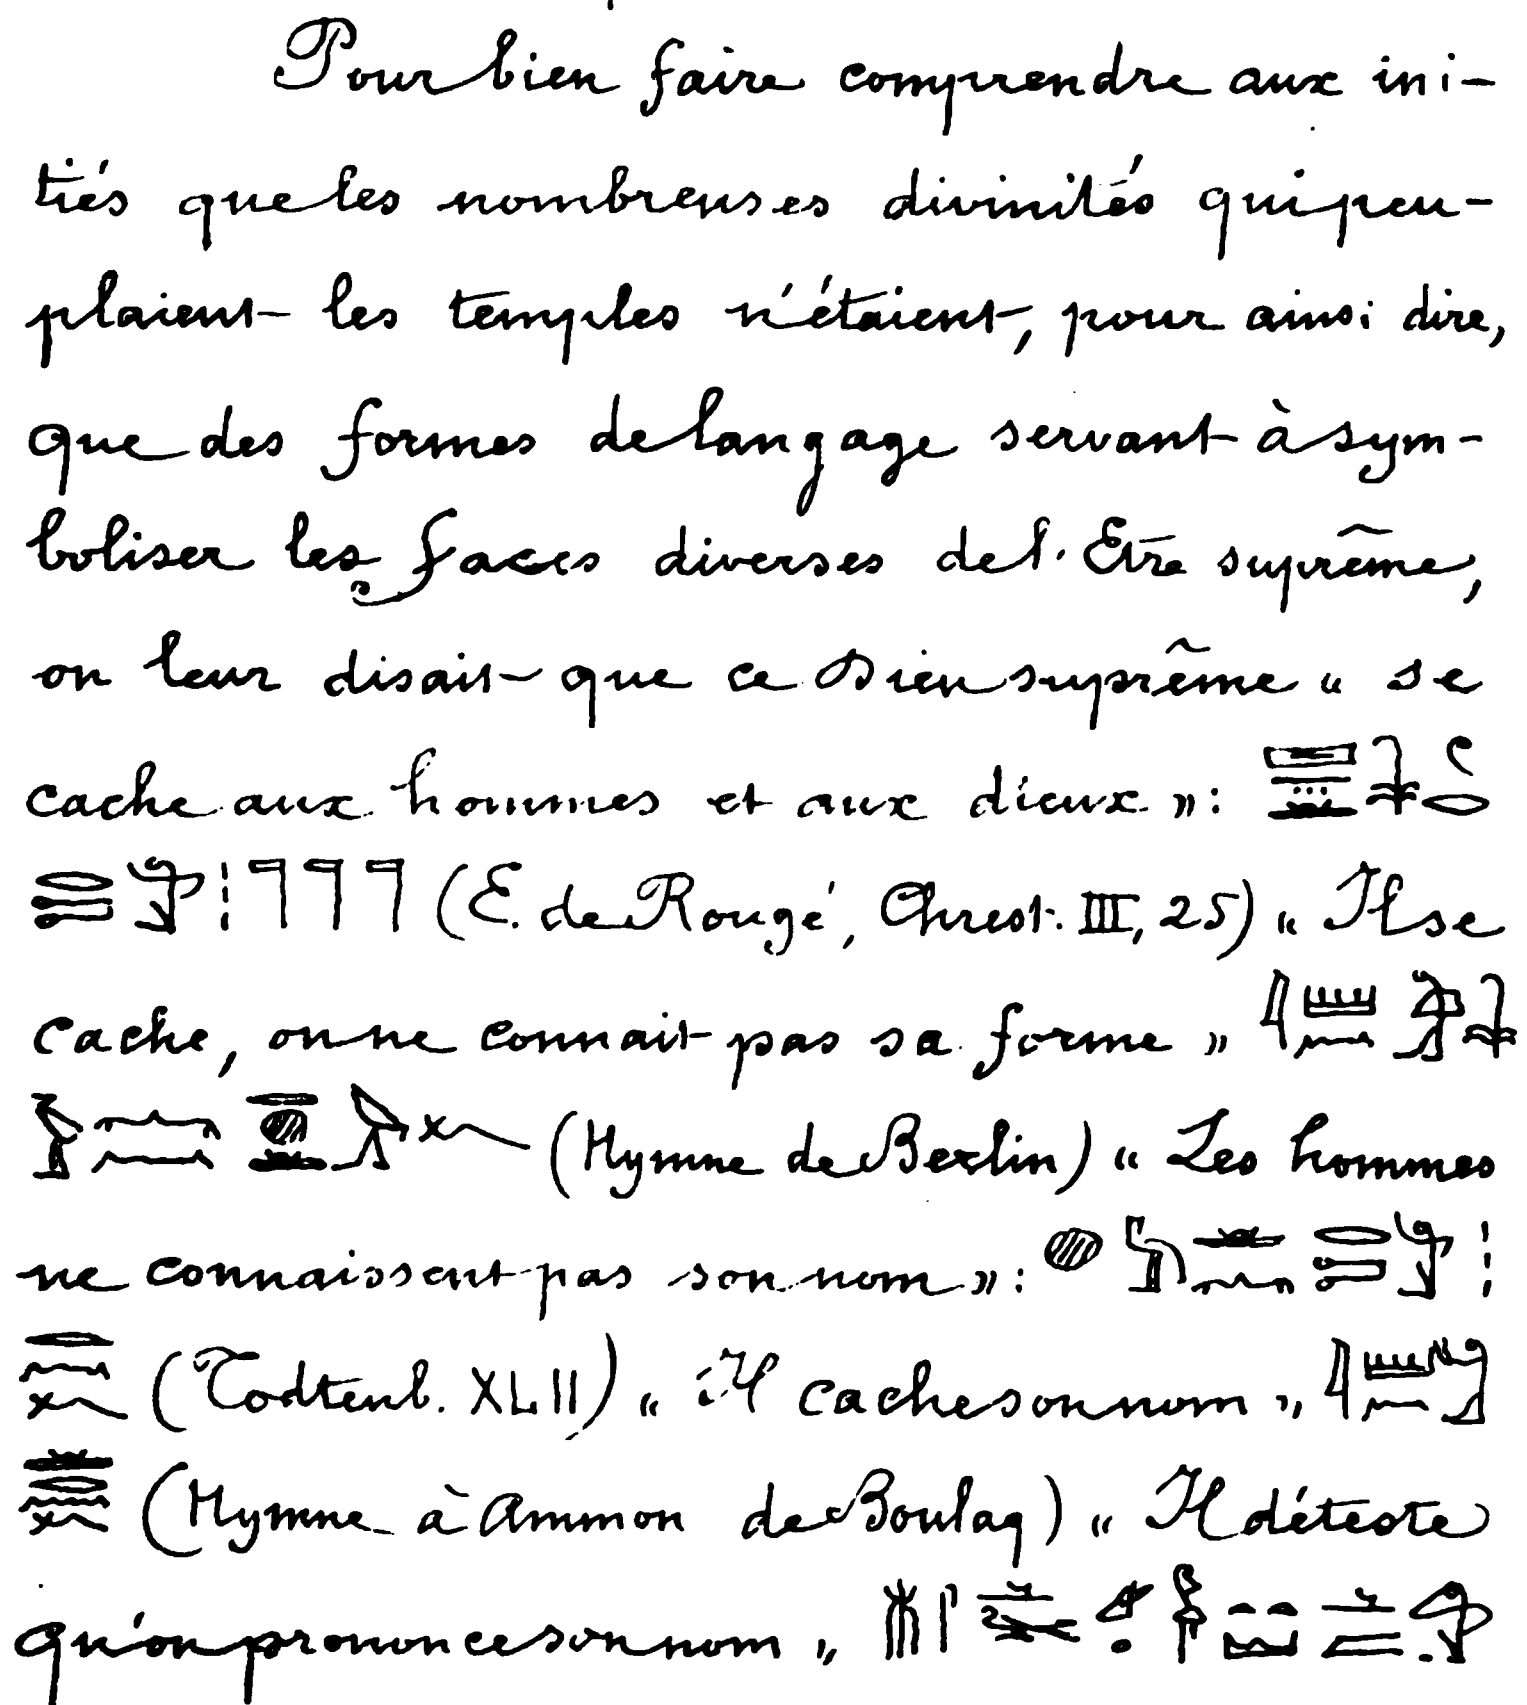 Pour bien faire comprendre aux ini-
tiés que les nombreuses divinités qui peu-
plaient les temples n'étaient, pour ainsi dire,
que des formes de langage servant à sym-
boliser les faces diverses de l'Etre suprême,
on leur disait que ce Dieu suprême « se
cache aux hommes et aux dieux » :
(E. de Rougé, Chrest. III, 25) « Il se
cache, on ne connait pas sa forme »
(Hymne de Berlin) « Les hommes
ne connaissent pas son nom » :
(Todtenb. XLII) « Il cache son nom »
(Hymne à Ammon de Boulaq) « Il déteste
qu'on prononce son nom »